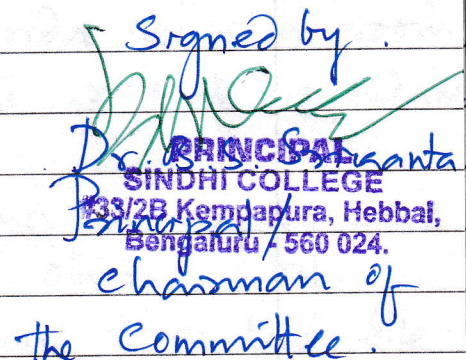 Signed by.
Dr. B.S. Srikanta
PRINCIPAL
SINDHI COLLEGE
#33/2B Kempapura, Hebbal,
Principal /
Bengaluru - 560 024.
chairman of
the Committee.